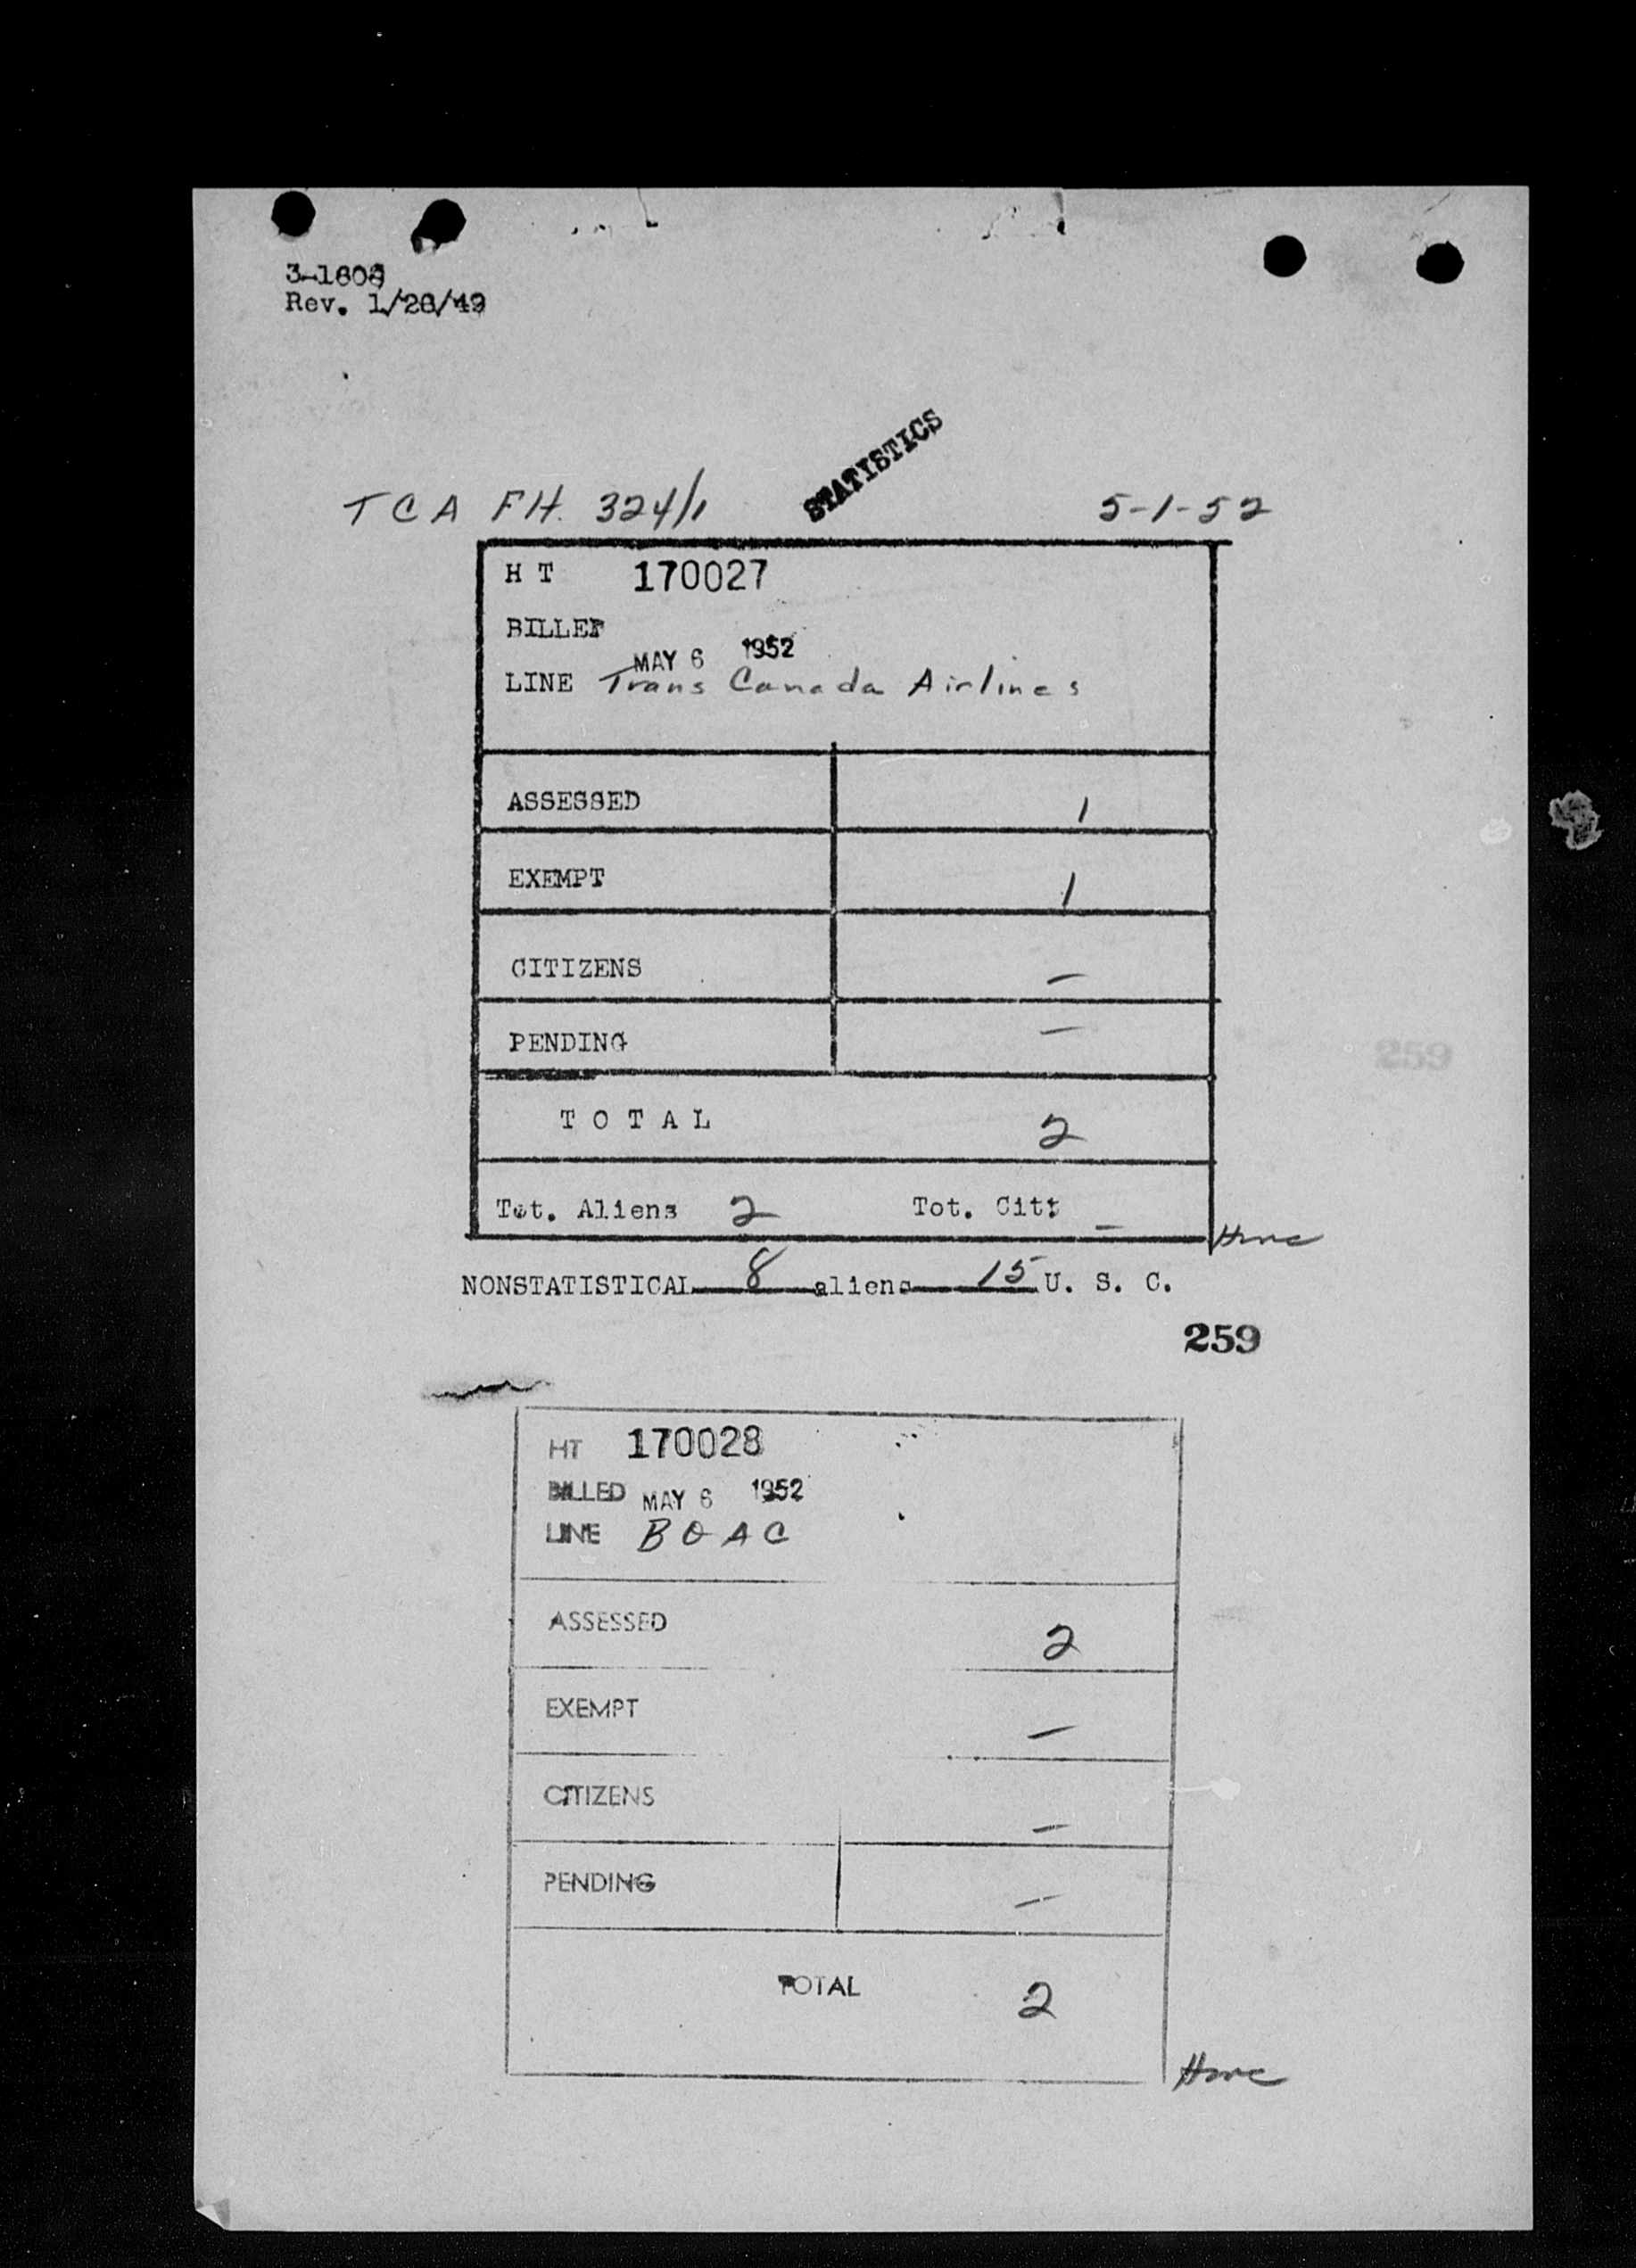 Rev. 1/26/49
STATISTICS
TCA Flt. 324/1 5-1-52
H T 170027
BILLED
MAY 6 1952
LINE Trans Canada Airlines
ASSESSED 1
EXEMPT 1
CITIZENS –
PENDING –
T O T A L 2
Tot. Aliens 2 Tot. Cit: –
NONSTATISTICAL 8 aliens 15 U. S. C.
259
259
HT 170028
BILLED MAY 6 1952
LINE BOAC
ASSESSED 2
EXEMPT –
CITIZENS –
PENDING –
TOTAL 2